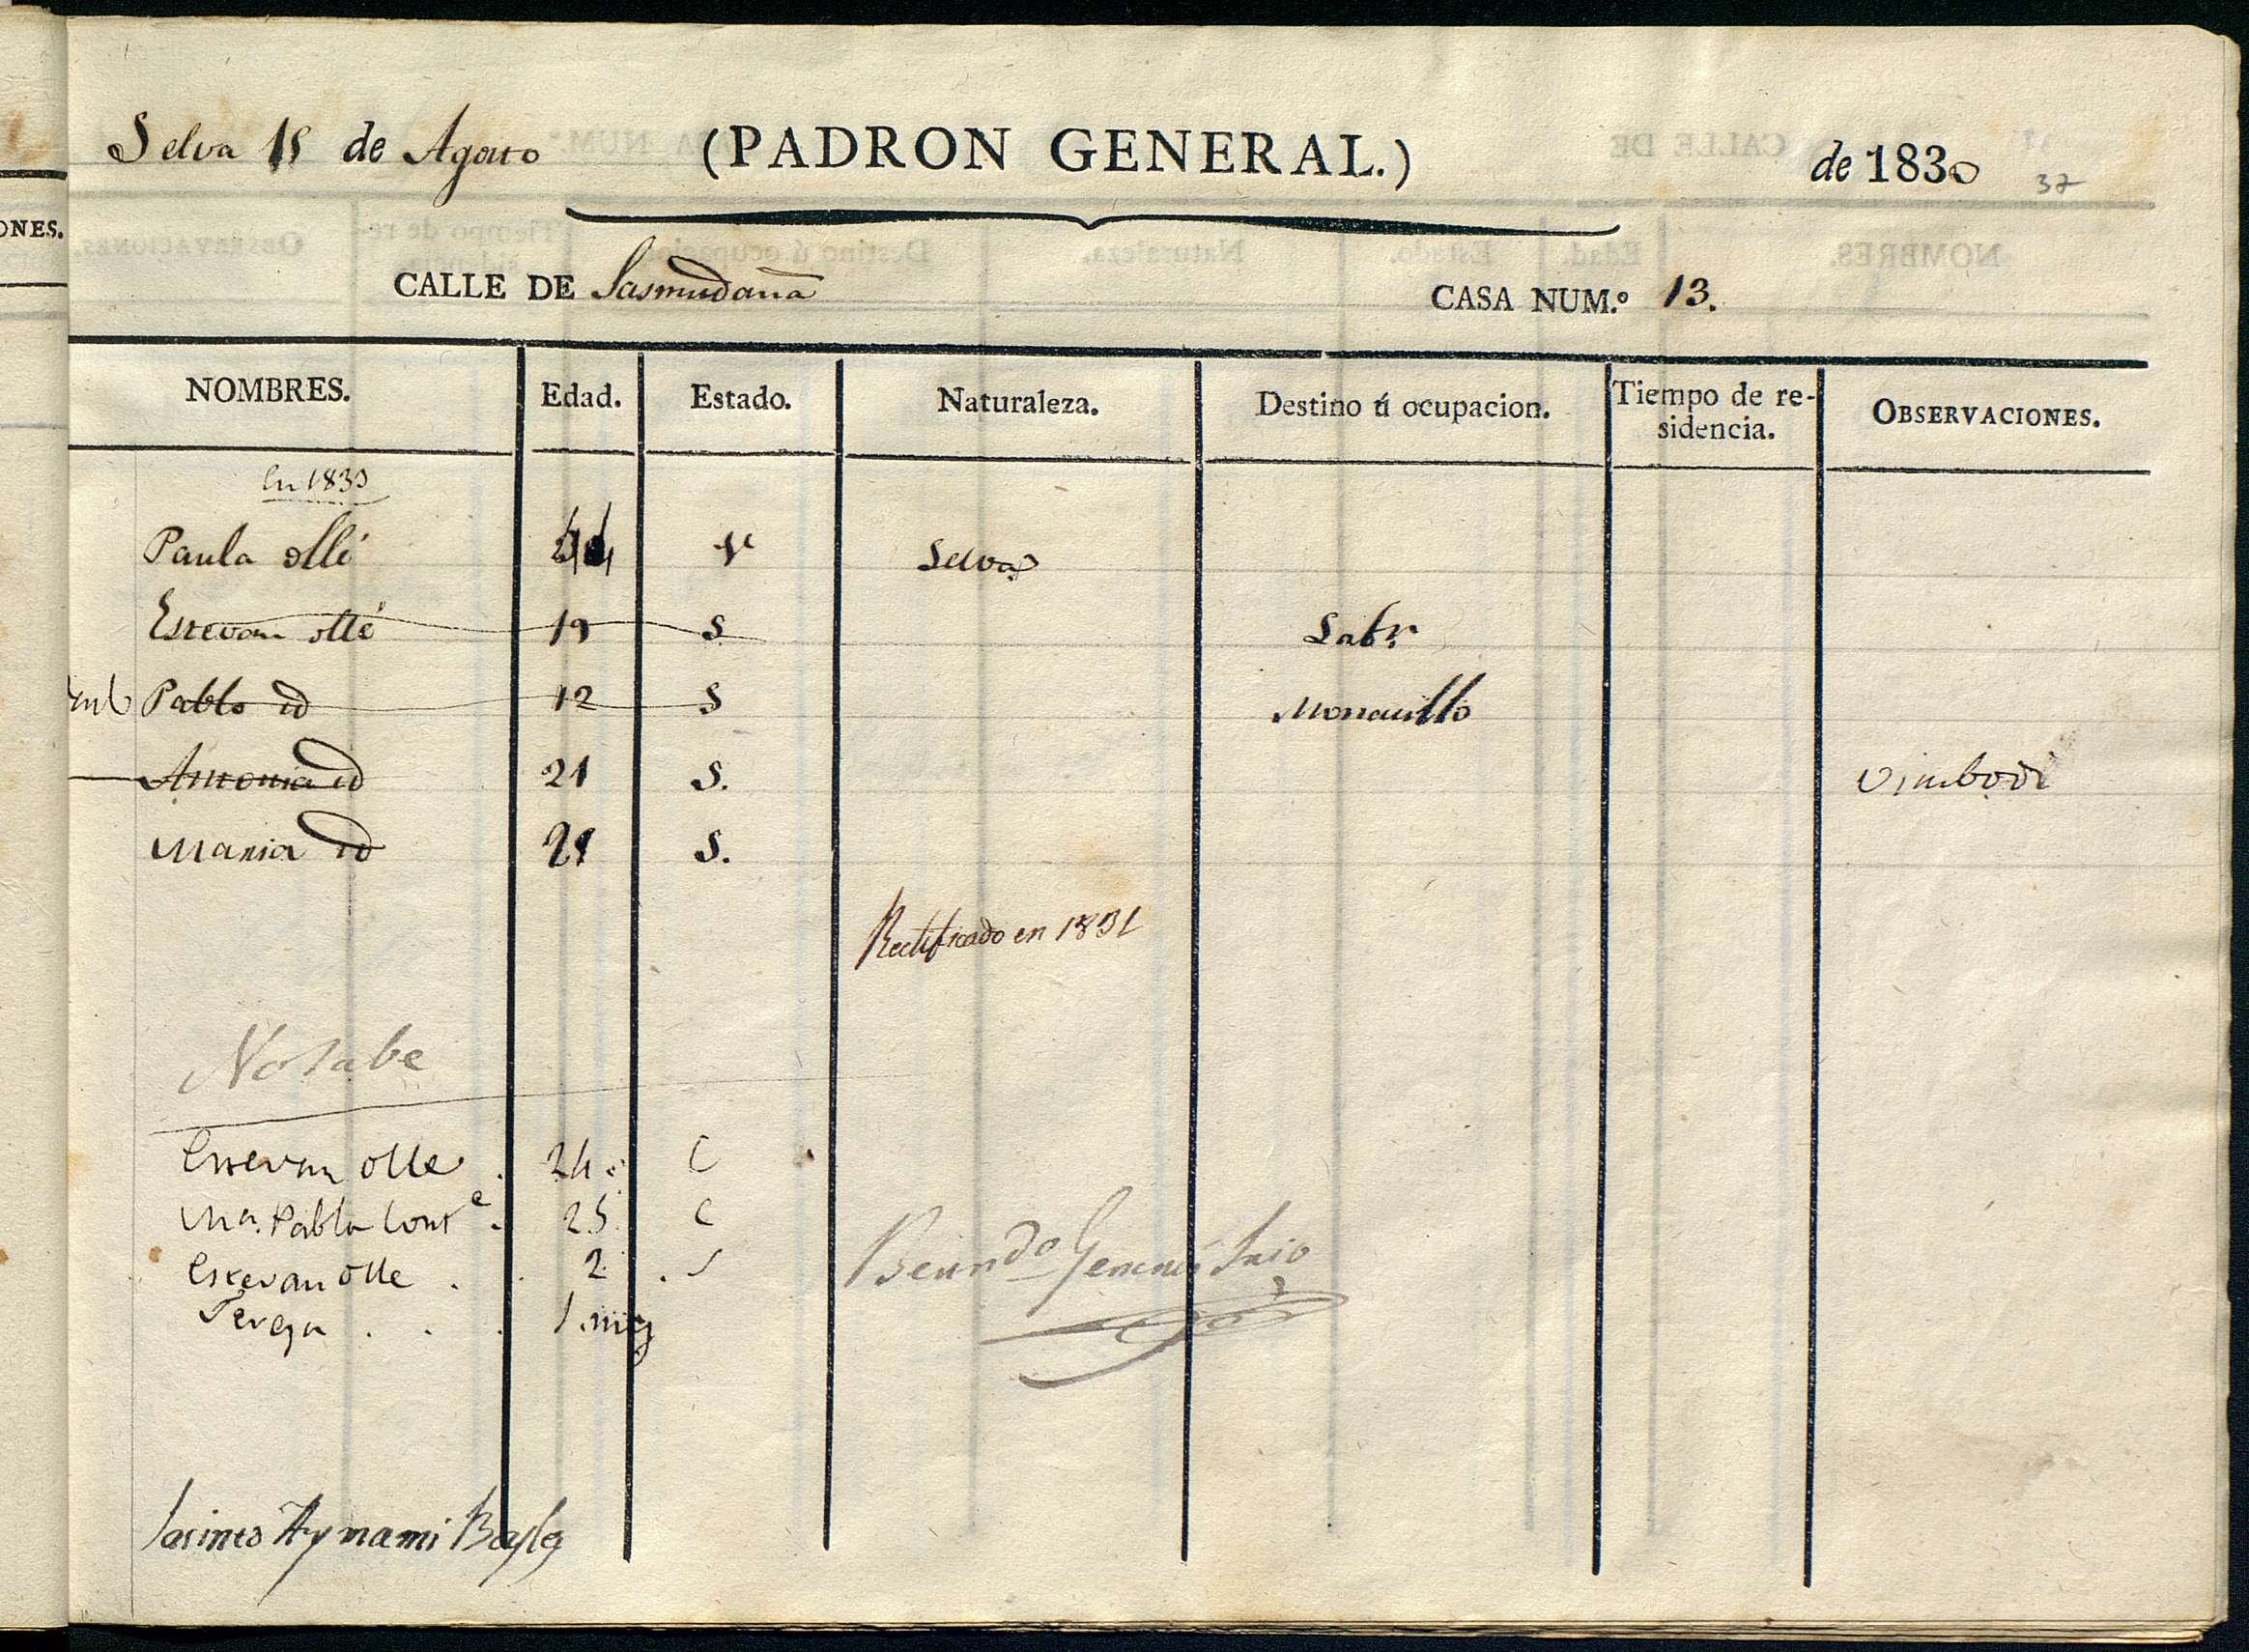 ONES.
Selva 15 de Agosto (PADRON GENERAL.) de 1830
37
CALLE DE Sasmudana CASA NUM.º 13.
NOMBRES. Edad. Estado. Naturaleza. Destino ú ocupacion. Tiempo de re-sidencia. OBSERVACIONES.
En 1833
Paula ollé Vᵉ Selva
Estevan ollé 19 S Labr
Pablo id 12 S Monacillo
Antonia id 21 S. Vimbodi
Maria id 21 S.
Rectificado en 1831
No sabe
Estevan olle . 24 C
Ma. Pabla 25 C
Estevan olle . . 2 . S
Tereza . . .
Jacinto Aynami Bayle